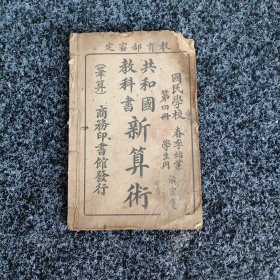 教育部審定
國民學校 春季始業
第四冊 學生用
共和國
教科書
新算術
（筆算）
商務印書館發行